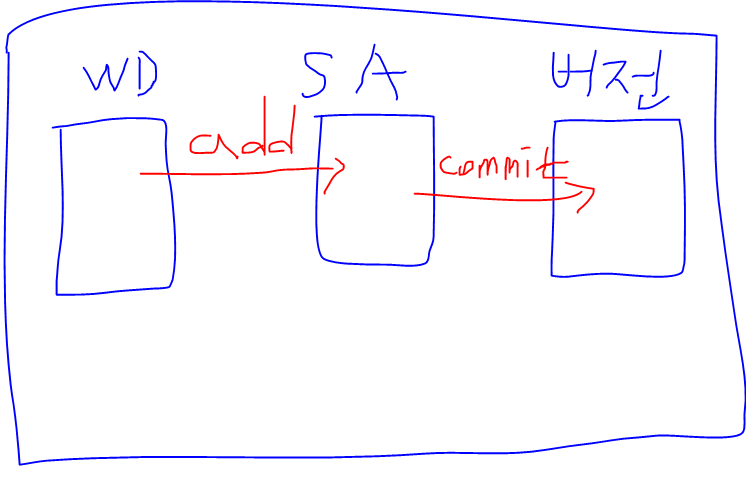 WD SA 버전
add commit